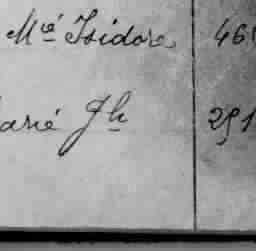 Mcé Isidore 46
arié Jh 291